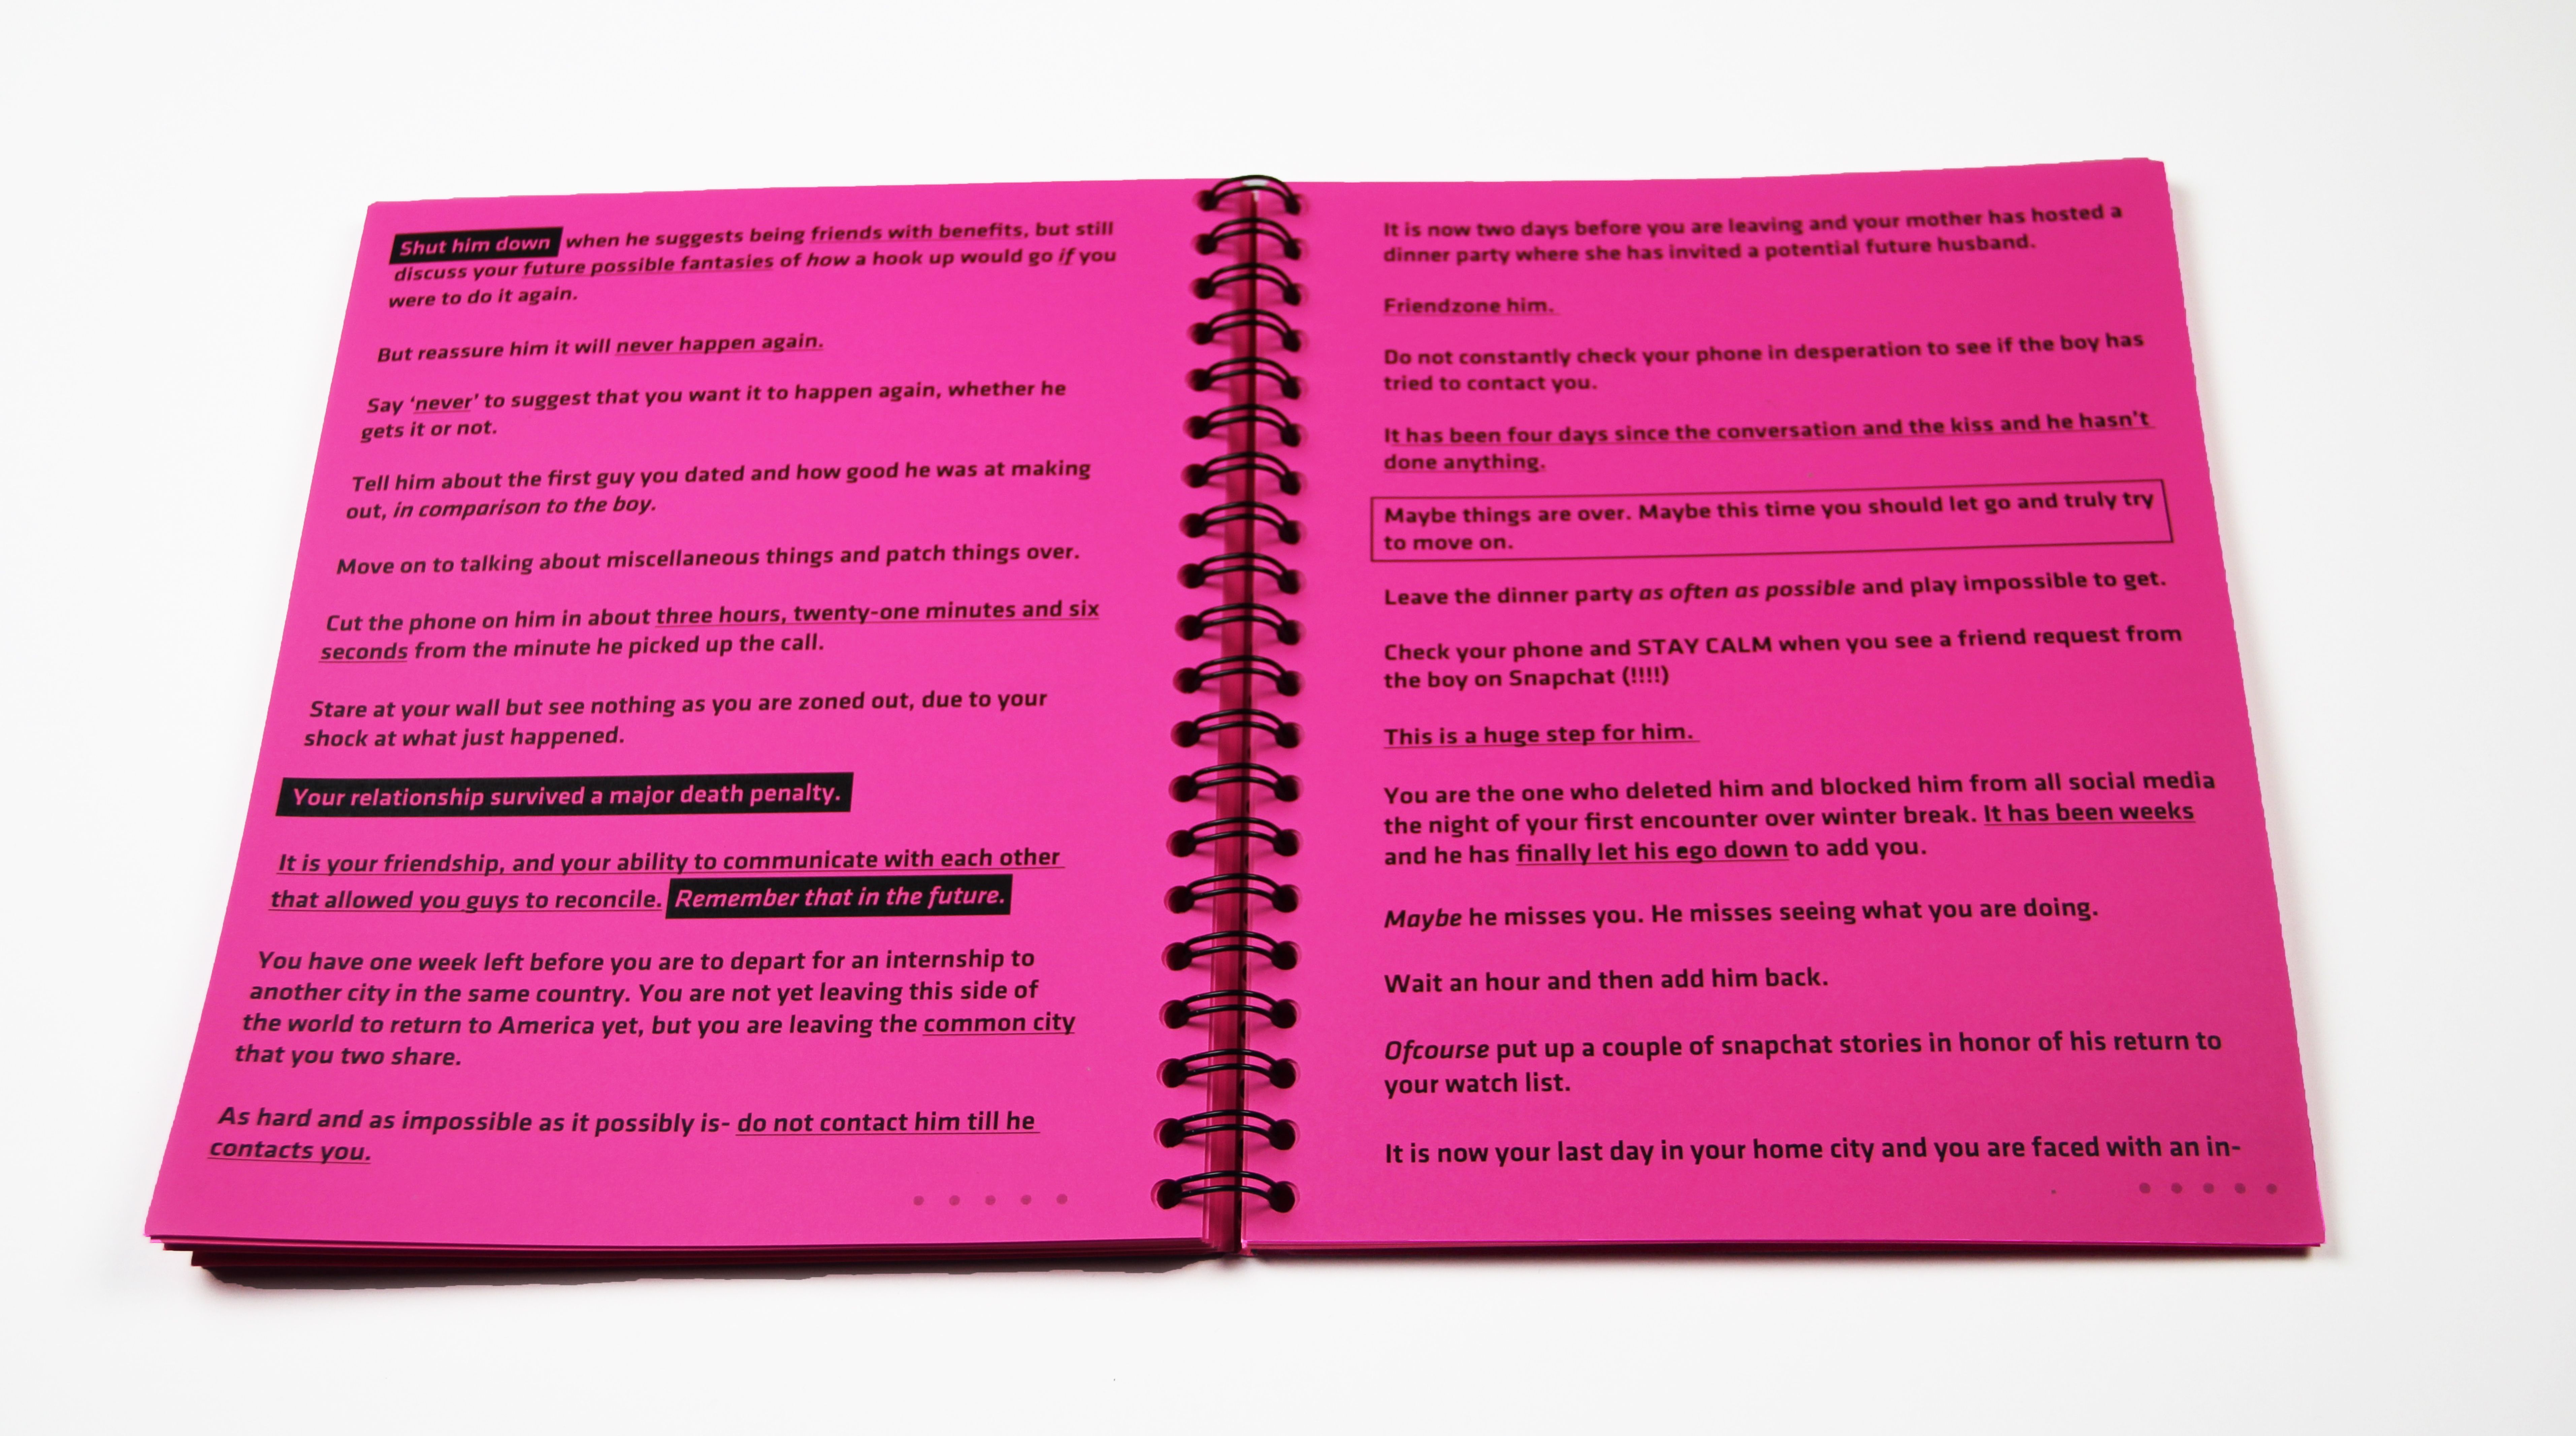 Shut him down when he suggests being friends with benefits, but still
discuss your future possible fantasies of how a hook up would go if you
were to do it again.
But reassure him it will never happen again.
Say ‘never’ to suggest that you want it to happen again, whether he
gets it or not.
Tell him about the first guy you dated and how good he was at making
out, in comparison to the boy.
Move on to talking about miscellaneous things and patch things over.
Cut the phone on him in about three hours, twenty-one minutes and six
seconds from the minute he picked up the call.
Stare at your wall but see nothing as you are zoned out, due to your
shock at what just happened.
Your relationship survived a major death penalty.
It is your friendship, and your ability to communicate with each other
that allowed you guys to reconcile. Remember that in the future.
You have one week left before you are to depart for an internship to
another city in the same country. You are not yet leaving this side of
the world to return to America yet, but you are leaving the common city
that you two share.
As hard and as impossible as it possibly is- do not contact him till he
contacts you.
It is now two days before you are leaving and your mother has hosted a
dinner party where she has invited a potential future husband.
Friendzone him.
Do not constantly check your phone in desperation to see if the boy has
tried to contact you.
It has been four days since the conversation and the kiss and he hasn't
done anything.
Maybe things are over. Maybe this time you should let go and truly try
to move on.
Leave the dinner party as often as possible and play impossible to get.
Check your phone and STAY CALM when you see a friend request from
the boy on Snapchat (!!!!)
This is a huge step for him.
You are the one who deleted him and blocked him from all social media
the night of your first encounter over winter break. It has been weeks
and he has finally let his ego down to add you.
Maybe he misses you. He misses seeing what you are doing.
Wait an hour and then add him back.
Ofcourse put up a couple of snapchat stories in honor of his return to
your watch list.
It is now your last day in your home city and you are faced with an in-